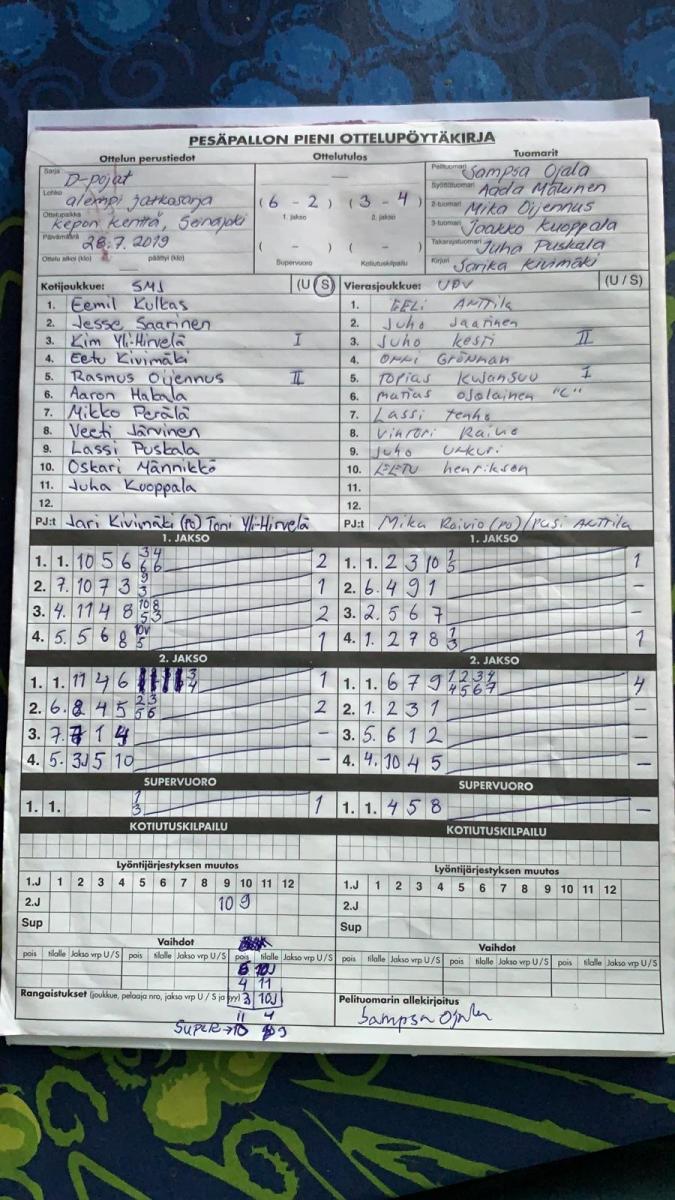 PESÄPALLON PIENI OTTELUPÖYTÄKIRJA
Ottelun perustiedot
Ottelutulos
Tuomarit
Sarja D-pojat
Lohko alempi jatkosarja
Ottelupaikka Kepon kenttä, Seinäjoki
Päivämäärä 28.7.2019
Ottelu alkoi (klo) päättyi (klo)
(6 - 2) (3 - 4)
1. jakso 2. jakso
( - ) ( - )
Supervuoro Kotiutuskilpailu
Pelituomari Sampsa Ojala
Syöttötuomari Aada Mäkinen
2-tuomari Mika Oijennus
3-tuomari Jaakko Kuoppala
Takarajatuomari Juha Puskala
Kirjuri Sarika Kivimäki
Kotijoukkue: SMJ (U S)
1. Eemil Kulkas
2. Jesse Saarinen
3. Kim Yli-Hirvelä I
4. Eetu Kivimäki
5. Rasmus Oijennus II
6. Aaron Hakala
7. Mikko Perälä
8. Veeti Järvinen
9. Lassi Puskala
10. Oskari Männikkö
11. Juha Kuoppala
12.
PJ:t Jari Kivimäki (PJ) Toni Yli-Hirvelä
Vierasjoukkue: UPV (U / S)
1. EELi Anttila
2. Juho Saarinen
3. Juho Kesti II
4. Grönman
5. Topias Kujansuu I
6. Matias Ojalainen "C"
7. Lassi Tenho
8. Vihtori Rainio
9. Juho
10. EETU henrikson
11.
12.
PJ:t Mika Roivio (PJ) / Pasi Anttila
1. JAKSO
1. 1. 10 5 6 3 4 2
6 6
2. 7. 10 7 3 9 1
3
3. 4. 11 4 8 10 8 2
5 3
4. 5. 5 6 8 10V 1
5
1. JAKSO
1. 1. 2 3 10 1 1
5
2. 6. 4 9 1 -
3. 2. 5 6 7 -
4. 1. 2 7 8 1 1
3
2. JAKSO
1. 1. 11 4 6 3 1
4
2. 6. 8 4 5 2 3 2
5 6
3. 7. 1 4 -
4. 5. 3J 5 10 -
2. JAKSO
1. 1. 6 7 9 1 2 3 4 4
4 5 6 7
2. 1. 2 3 1 -
3. 5. 6 1 2 -
4. 4. 10 4 5 -
SUPERVUORO
1. 1. 1 1
3
SUPERVUORO
1. 1. 4 5 8 -
KOTIUTUSKILPAILU
KOTIUTUSKILPAILU
Lyöntijärjestyksen muutos
1.J 1 2 3 4 5 6 7 8 9 10 11 12
2.J 10 9
Sup
Lyöntijärjestyksen muutos
1.J 1 2 3 4 5 6 7 8 9 10 11 12
2.J
Sup
Vaihdot
pois tilalle Jakso vrp U/S pois tilalle Jakso vrp U/S pois tilalle Jakso vrp U/S
10J
4 11
3 10J
11 4
SUPER→10 9
Vaihdot
pois tilalle Jakso vrp U/S pois tilalle Jakso vrp U/S pois tilalle Jakso vrp U/S
Rangaistukset (joukkue, pelaaja nro, jakso vrp U / S ja
Pelituomarin allekirjoitus
Sampsa Ojala